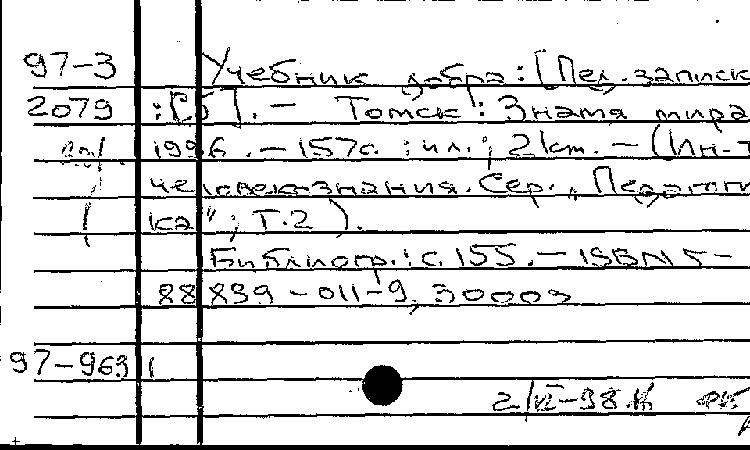 97-3 Учебник добра : [Пед. записк
2079 : [Сб]. – Томск : Знамя мира
1996. – 157с. : ил.; 21см. – (Ин-т
человекознания. Сер. „Педагоги
ка"; Т.2).
Библиогр.: с. 155. – ISBN 5-
88839-011-9, 3000э
97-9631
2/VI-98.